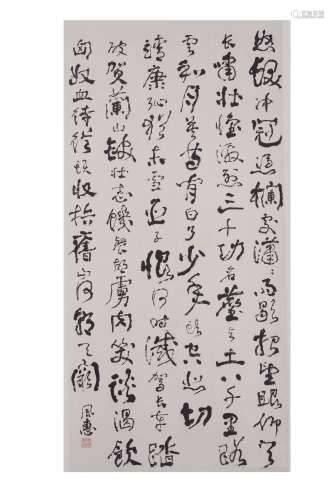 怒髮冲冠憑欄處瀟瀟雨歇抬望眼仰天
長嘯壯懷激烈三十功名塵与土八千里路
雲和月莫等閒白了少年頭空悲切
靖康恥猶未雪臣子恨何時滅駕長車踏
破賀蘭山缺壯志饑餐胡虜肉笑談渴飲
匈奴血待從頭收拾舊山河朝天闕